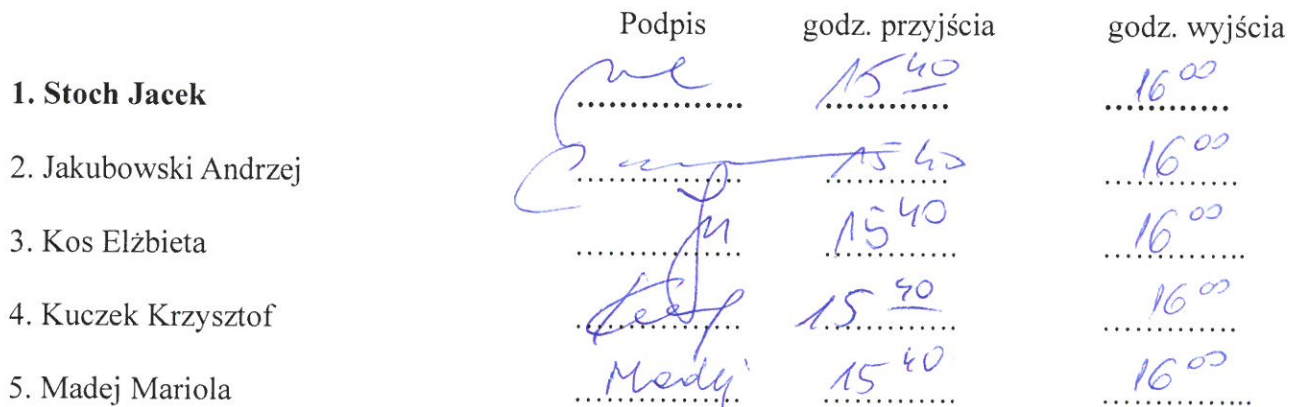 Podpis godz. przyjścia godz. wyjścia
1. Stoch Jacek 15 40 16 00
2. Jakubowski Andrzej 15 40 16 00
3. Kos Elżbieta 15 40 16 00
4. Kuczek Krzysztof 15 40 16 00
5. Madej Mariola Madej 15 40 16 00